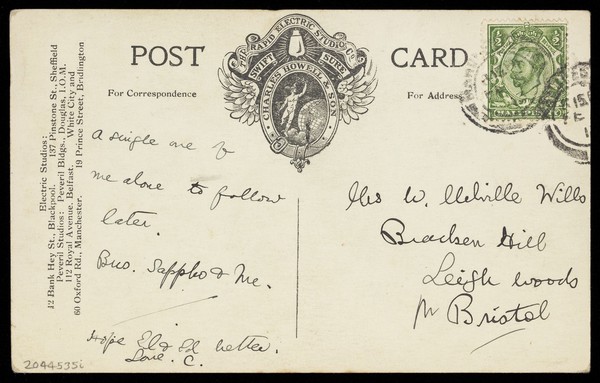 POST CARD
THE RAPID ELECTRIC STUDIO CO.
SWIFT SURE
CHARLES HOWELL & SON
For Correspondence
For Address
Electric Studios:
12 Bank Hey St., Blackpool. 137 Pinstone St., Sheffield
Peveril Studios: Peveril Bldgs., Douglas, I.O.M.
112 Royal Avenue, Belfast. White City and
60 Oxford Rd., Manchester. 19 Prince Street, Bridlington
A single one of
me alone to follow
later.
Bro. Sappho & Me.
Hope El & Ed better.
Love. C.
Mrs W. Melville Wills
Bracken Hill
Leigh Woods
Nr Bristol
½ ½
2044535i